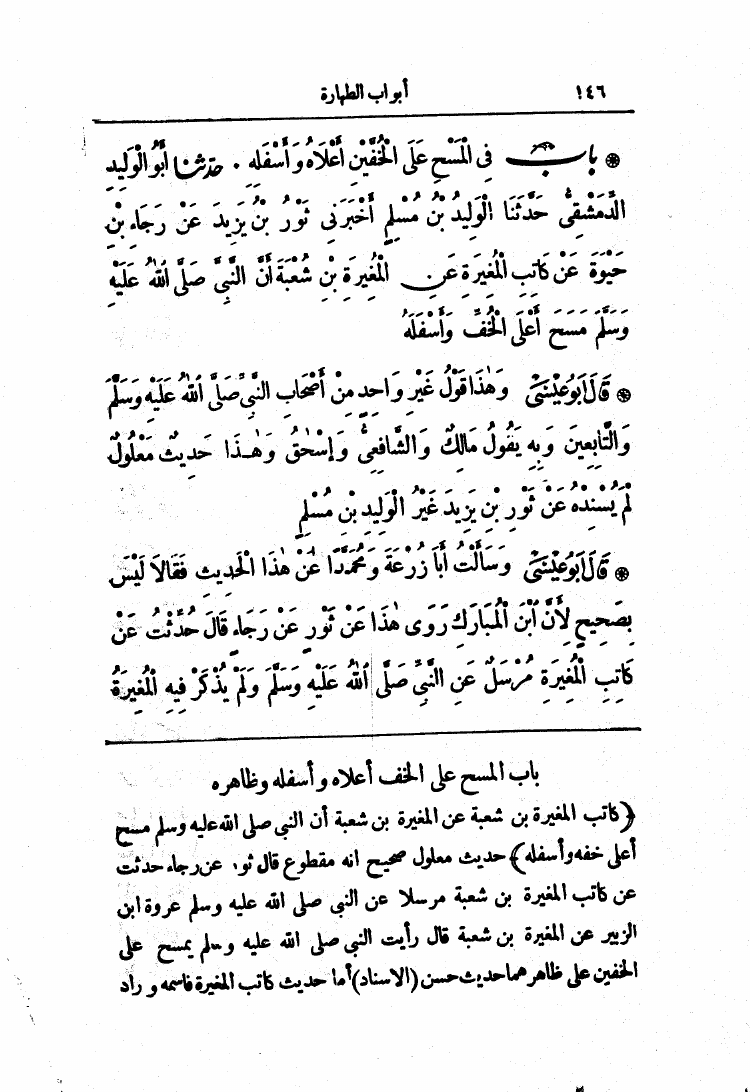 ١٤٦ أبواب الطهارة
❊ بابٌ فِى الْمَسْحِ عَلَى الْخُفَّيْنِ أَعْلَاهُ وَأَسْفَلِهِ . حدثنا أَبُو الْوَلِيدِ
الدِّمَشْقِىُّ حَدَّثَنَا الْوَلِيدُ بْنُ مُسْلِمٍ أَخْبَرَنِى ثَوْرُ بْنُ يَزِيدَ عَنْ رَجَاءِ بْنِ
حَيْوَةَ عَنْ كَاتِبِ الْمُغِيرَةِ عَنِ الْمُغِيرَةِ بْنِ شُعْبَةَ أَنَّ النَّبِىَّ صَلَّى اللهُ عَلَيْهِ
وَسَلَّمَ مَسَحَ أَعْلَى الْخُفِّ وَأَسْفَلَهُ
❊ قَالَ أَبُو عِيْسَىٰ وَهٰذَا قَوْلُ غَيْرِ وَاحِدٍ مِنْ أَصْحَابِ النَّبِىِّ صَلَّى اللهُ عَلَيْهِ وَسَلَّمَ
وَالتَّابِعِينَ وَبِهِ يَقُولُ مَالِكٌ وَالشَّافِعِىُّ وَإِسْحٰقُ وَهٰـذَا حَدِيثٌ مَعْلُولٌ
لَمْ يُسْنِدْهُ عَنْ ثَوْرِ بْنِ يَزِيدَ غَيْرُ الْوَلِيدِ بْنِ مُسْلِمٍ
❊ قَالَ أَبُو عِيْسَىٰ وَسَأَلْتُ أَبَا زُرْعَةَ وَمُحَمَّدًا عَنْ هٰذَا الْحَدِيثِ فَقَالَا لَيْسَ
بِصَحِيحٍ لِأَنَّ ابْنَ الْمُبَارَكِ رَوَى هٰذَا عَنْ ثَوْرٍ عَنْ رَجَاءٍ قَالَ حُدِّثْتُ عَنْ
كَاتِبِ الْمُغِيرَةِ مُرْسَلٌ عَنِ النَّبِىِّ صَلَّى اللهُ عَلَيْهِ وَسَلَّمَ وَلَمْ يُذْكَرْ فِيهِ الْمُغِيرَةُ
باب المسح على الخف أعلاه وأسفله وظاهره
﴿كاتب المغيرة بن شعبة عن المغيرة بن شعبة أن النبي صلى الله عليه وسلم مسح
أعلى خفه وأسفله﴾ حديث معلول صحيح انه مقطوع قال ثور عن رجاء حدثت
عن كاتب المغيرة بن شعبة مرسلا عن النبي صلى الله عليه وسلم عروة ابن
الزبير عن المغيرة بن شعبة قال رأيت النبي صلى الله عليه وسلم يمسح على
الخفين على ظاهرهما حديث حسن (الاسناد) أما حديث كاتب المغيرة فاسمه وراد